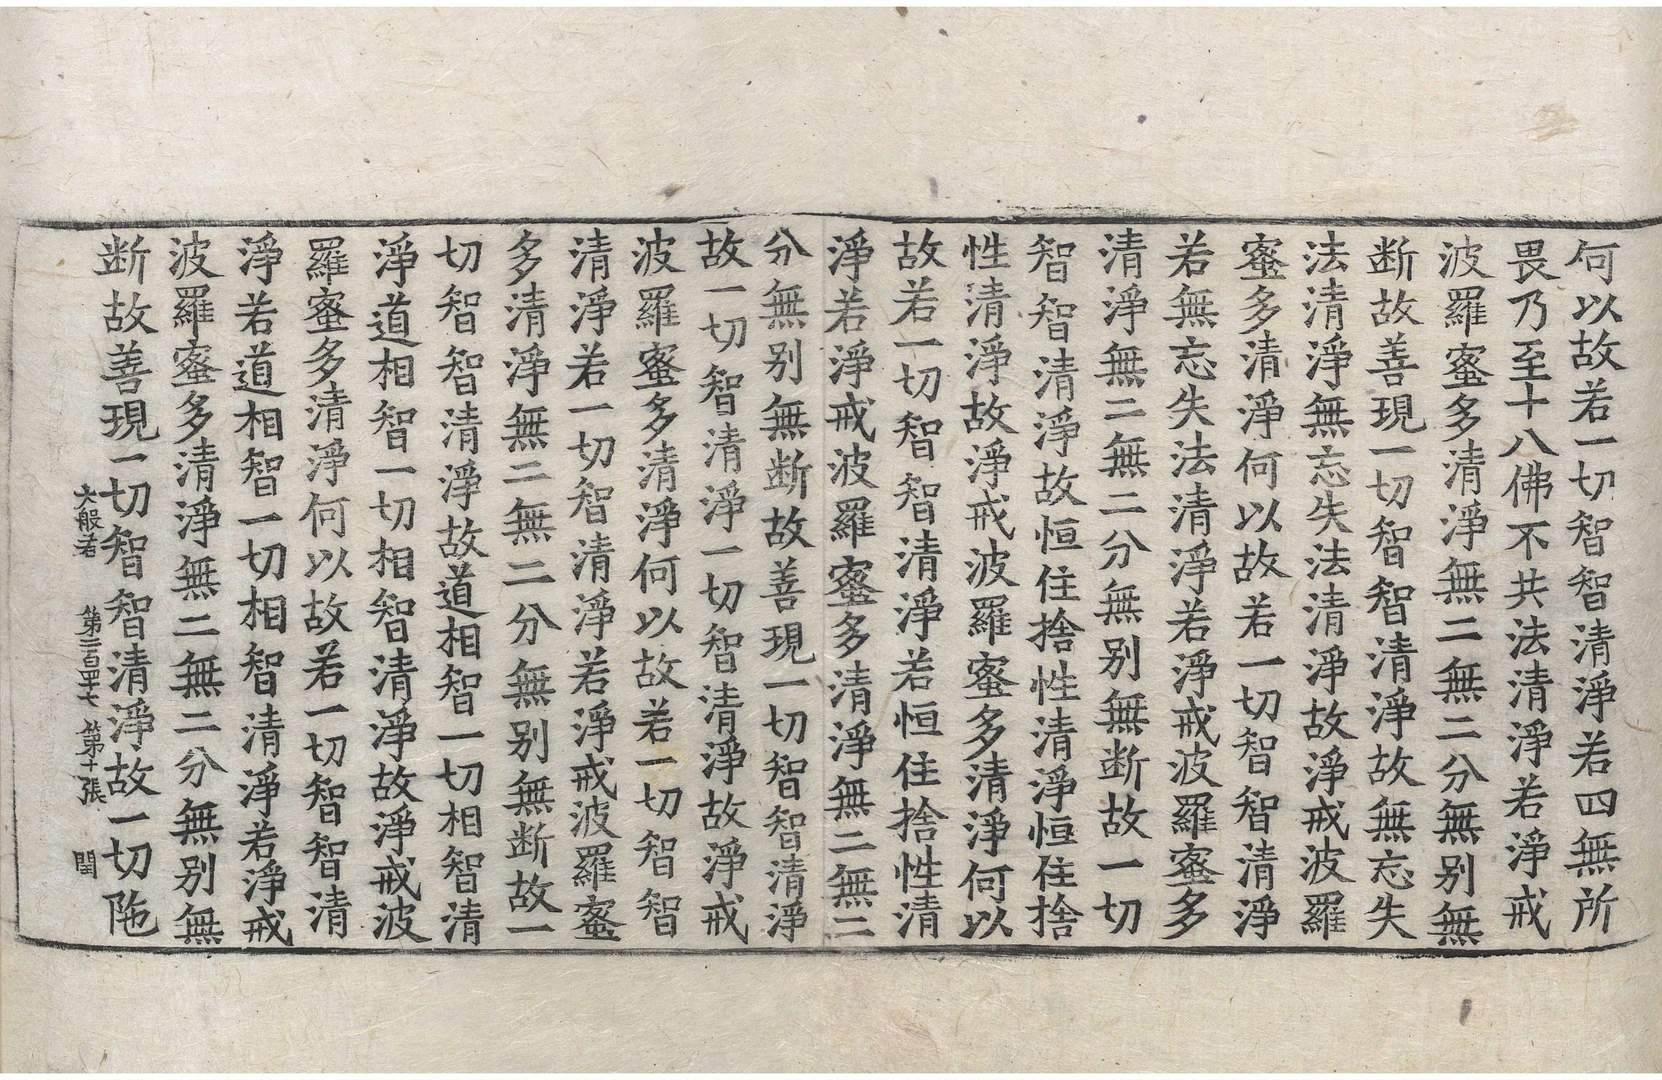 何以故若一切智智清淨若四無所
畏乃至十八佛不共法清淨若淨戒
波羅蜜多清淨無二無二分無别無
断故善現一切智智清淨故無忘失
法清淨無忘失法清淨故淨戒波羅
蜜多清淨何以故若一切智智清淨
若無忘失法清淨若淨戒波羅蜜多
清淨無二無二分無别無断故一切
智智清淨故恒住捨性清淨恒住捨
性清淨故淨戒波羅蜜多清淨何以
故若一切智智清淨若恒住捨性清
淨若淨戒波羅蜜多清淨無二無二
分無别無断故善現一切智智清淨
故一切智清淨一切智清淨故淨戒
波羅蜜多清淨何以故若一切智智
清淨若一切智清淨若淨戒波羅蜜
多清淨無二無二分無别無断故一
切智智清淨故道相智一切相智清
淨道相智一切相智清淨故淨戒波
羅蜜多清淨何以故若一切智智清
淨若道相智一切相智清淨若淨戒
波羅蜜多清淨無二無二分無别無
断故善現一切智智清淨故一切陁
大般若 第二百四十七 第十張 閏